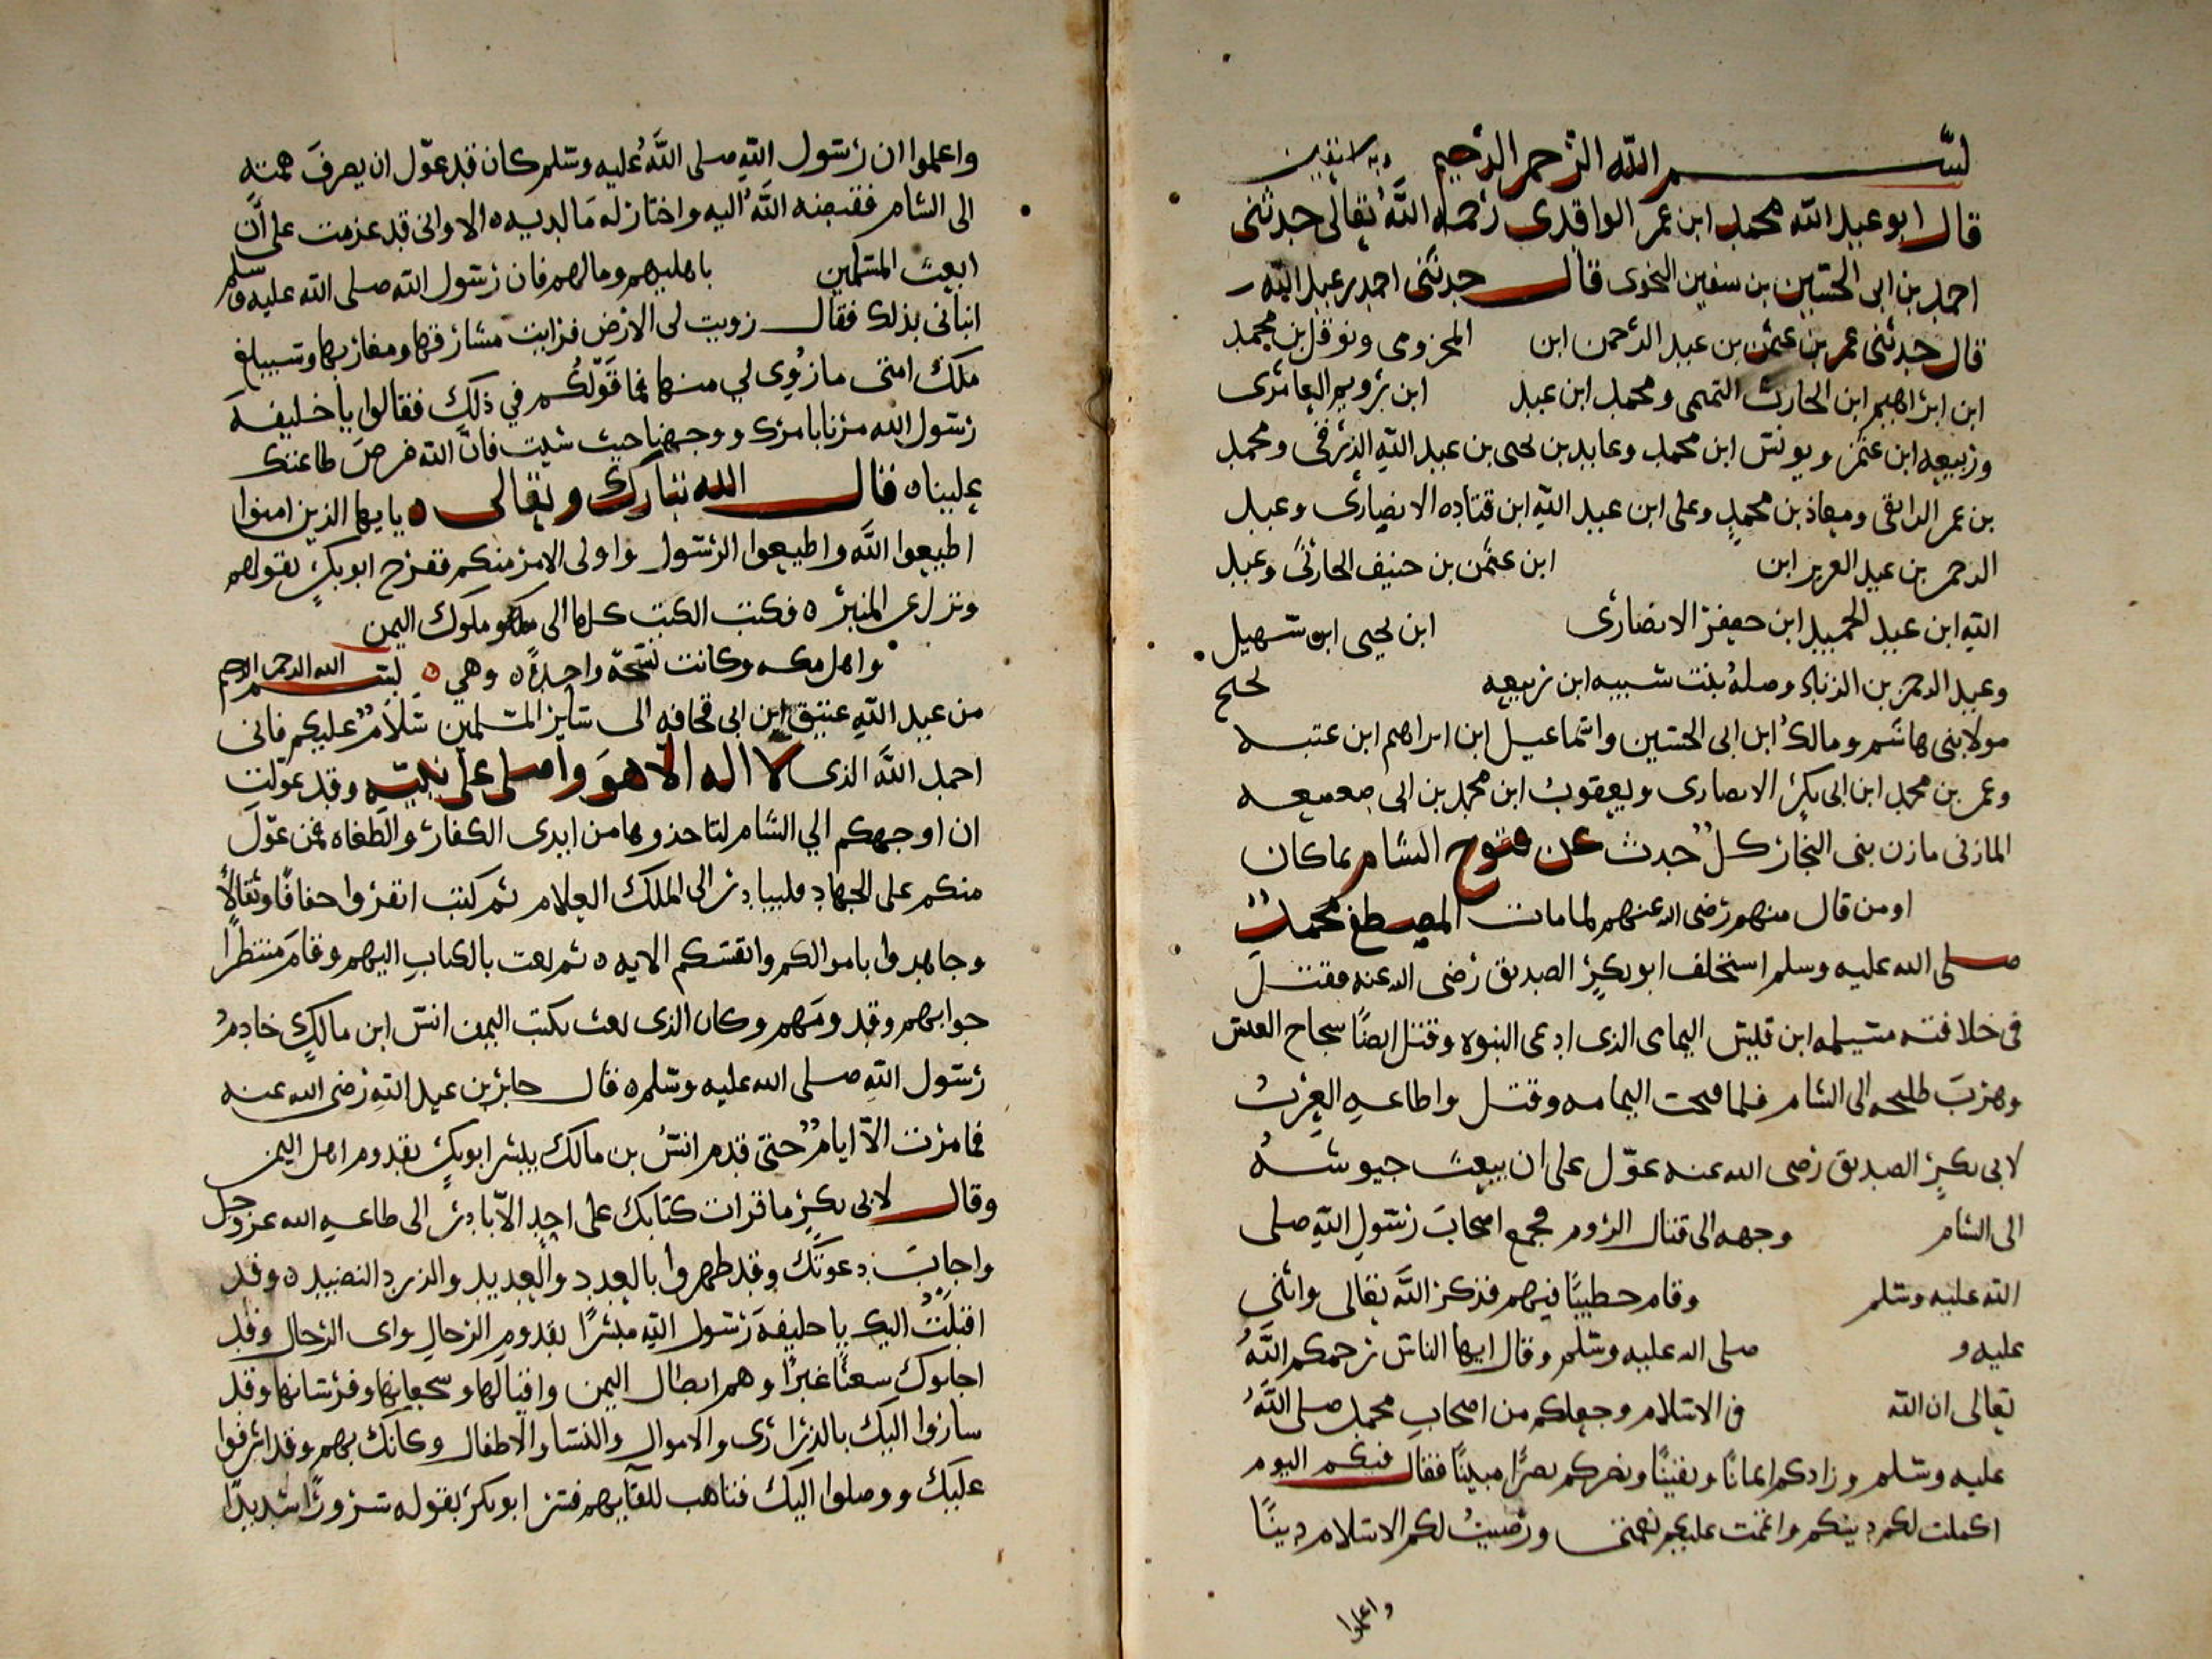 بسم الله الرحمن الرحيم وبه نستعين
قال ابو عبد الله محمد ابن عمر الواقدى رحمه الله تعالى حدثنى
احمد بن ابى الحسين بن سفين النحوى قال حدثنى احمد بن عبد الله
قال حدثنى عمر بن عثمن بن عبد الرحمن ابن المخزومى ونوفل ابن محمد
ابن ابراهيم ابن الحارث التميمى ومحمد ابن عبد ابن العامرى
وربيعه ابن عثمن ويونس ابن محمد وعابد بن يحيى بن عبد الله الزرقى ومحمد
بن عمر الرابقى ومعاذ بن محمد وعلى ابن عبد الله ابن قتاده الانصارى وعبد
الرحمن بن عبد العزيز ابن ابن عثمن بن حنيف الحارثى وعبد
الله ابن عبد الحميد ابن جعفر الانصارى ابن يحيى ابن سهيل
وعبد الرحمن بن الزناد وصله بنت شبيبه ابن ربيعه
مولا بنى هاشم ومالك ابن ابى الحسين واسماعيل ابن ابراهيم ابن عتبه
وعمر بن محمد ابن ابى بكر الانصارى ويعقوب ابن محمد بن ابى صعصعه
المازنى مازن بنى النجار كل حدث عن فتوح الشام بما كان
او من قال منهم رضى الله عنهم لما مات المصطفى محمد
صلى الله عليه وسلم استخلف ابو بكر الصديق رضى الله عنه فقتل
فى خلافته مسيلمه ابن قليس اليمامى الذى ادعى النبوه وقتل ايضا سجاح العنس
وهرب طليحه الى الشام فلما فتحت اليمامه وقتل واطاعه العرب
لابى بكر الصديق رضى الله عنه عول على ان يبعث جيوشه
الى الشام وجهه الى قتال الروم فجمع اصحاب رسول الله صلى
الله عليه وسلم وقام خطيبا فيهم فذكر الله تعالى واثنى
عليه و صلى الله عليه وسلم وقال ايها الناس رحمكم الله
تعالى ان الله فى الاسلام وجعلكم من اصحاب محمد صلى الله
عليه وسلم وزادكم ايمانا ويقينا ونصركم نصرا مبينا فقال فيكم اليوم
اكملت لكم دينكم واتممت عليكم نعمتى ورضيت لكم الاسلام دينا
واعلموا
واعلموا ان رسول الله صلى الله عليه وسلم كان قد عول ان يصرف همته
الى الشام فقبضه الله اليه واختار له ما لديه الا وانى قد عزمت على ان
ابعث المسلمين باهليهم ومالهم فان رسول الله صلى الله عليه وسلم
انبانى بذلك فقال زويت لى الارض فرايت مشارقها ومغاربها وسيبلغ
ملك امتى ما زوى لي منها فما قولكم في ذلك فقالوا يا خليفه
رسول الله مرنا بامرك ووجهنا حيث شيت فان الله فرض طاعتك
علينا قال الله تبارك وتعالى يايها الذين امنوا
اطيعوا الله واطيعوا الرسول واولى الامر منكم ففرح ابو بكر بقولهم
ونزل عن المنبر فكتب الكتب كلها الى ملوك اليمن
واهل مكه وكانت نسخة واحدة وهي بسم الله الرحمن الرحيم
من عبد الله عتيق ابن ابى قحافه الى ساير المسلمين سلام عليكم فانى
احمد الله الذى لا اله الا هو واصلى على نبيه وقد عولت
ان اوجهكم الي الشام لتاخذوها من ايدى الكفار والطغاه فمن عول
منكم على الجهاد فليبادر الى الملك العلام ثم كتب انفروا خفافا وثقالا
وجاهدوا باموالكم وانفسكم الايه ثم بعث بالكتاب اليهم وقام منتظرا
جوابهم وقدومهم وكان الذى بعث بكتب اليمن انس ابن مالك خادم
رسول الله صلى الله عليه وسلم قال جابر بن عبد الله رضى الله عنه
فما مرت الا ايام حتى قدم انس بن مالك يبشر ابو بكر بقدوم اهل اليمن
وقال لابى بكر ما قرات كتابك على احد الا بادر الى طاعه الله عز وجل
واجاب دعوتك وقد ظهروا بالعدد والعديد والزرد النضيد وقد
اقبلت اليك يا خليفه رسول الله مبشرا بقدوم الرجال واى الرجال وقد
اجابوك شعثا غبرا وهم ابطال اليمن واقيالها وشجعانها وفرسانها وقد
ساروا اليك بالذرارى والاموال والنسا والاطفال وكانك بهم وقد اشرفوا
عليك ووصلوا اليك فتاهب للقايهم فسر ابو بكر بقوله سرورا شديدا